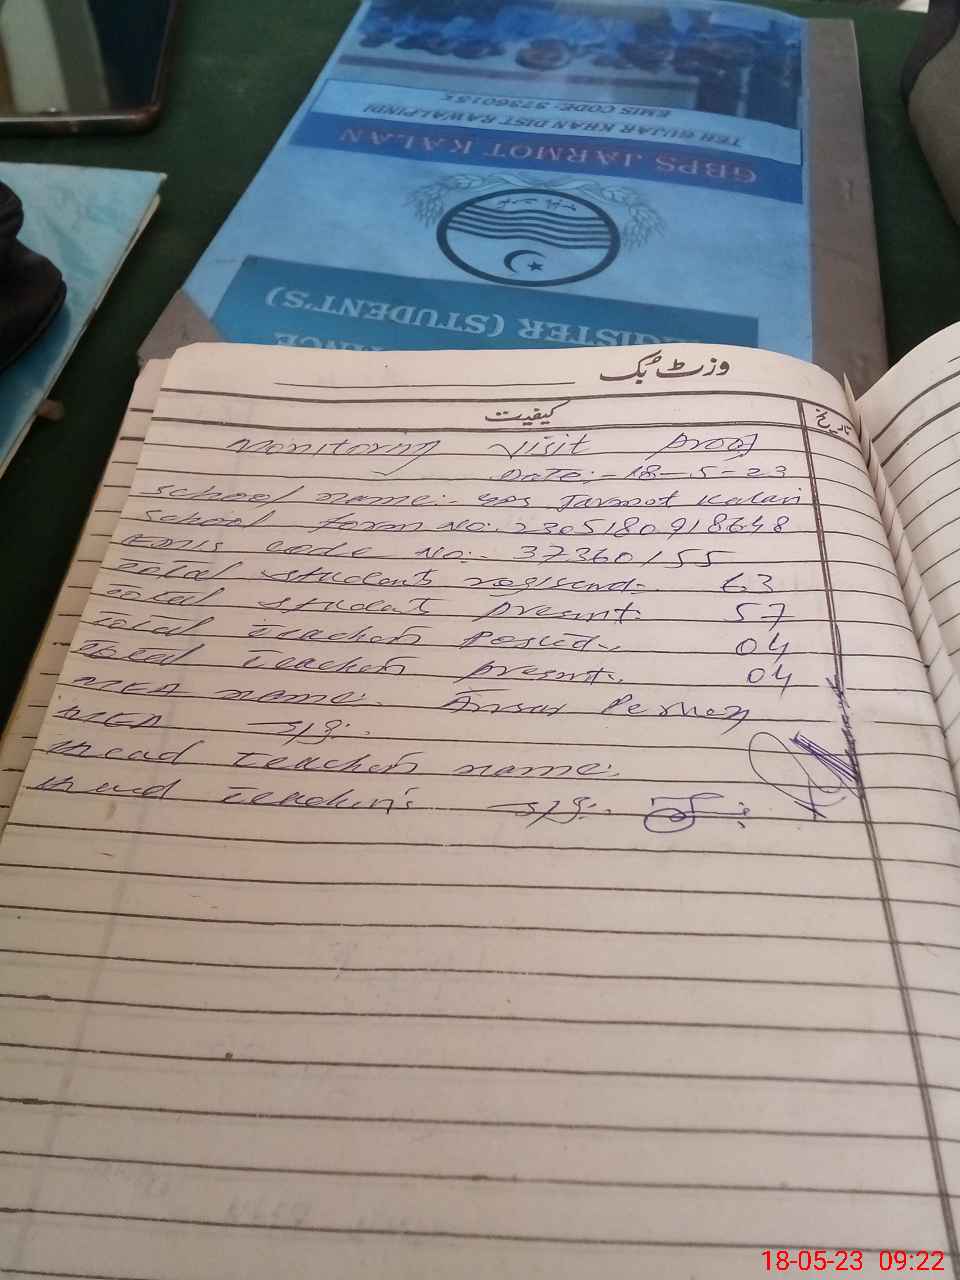 GBPS JARMOT KALAN
TEH GUJAR KHAN DIST RAWALPINDI
EMIS CODE: 3736015
REGISTER (STUDENT'S)
وزٹ بک
کیفیت
تاریخ
Monitoring Visit Proof
Date:- 18-5-23
School name:- GPS Jarmot Kalan
School form No: 2305180918648
EMIS code No:- 37360155
Total students registered:- 63
Total student present:- 57
Total teachers posted:- 04
Total teachers present:- 04
MEA name:- Ansar Pervez
MEA sig:-
Head teacher name:-
Head teacher's sig:-
18-05-23 09:22